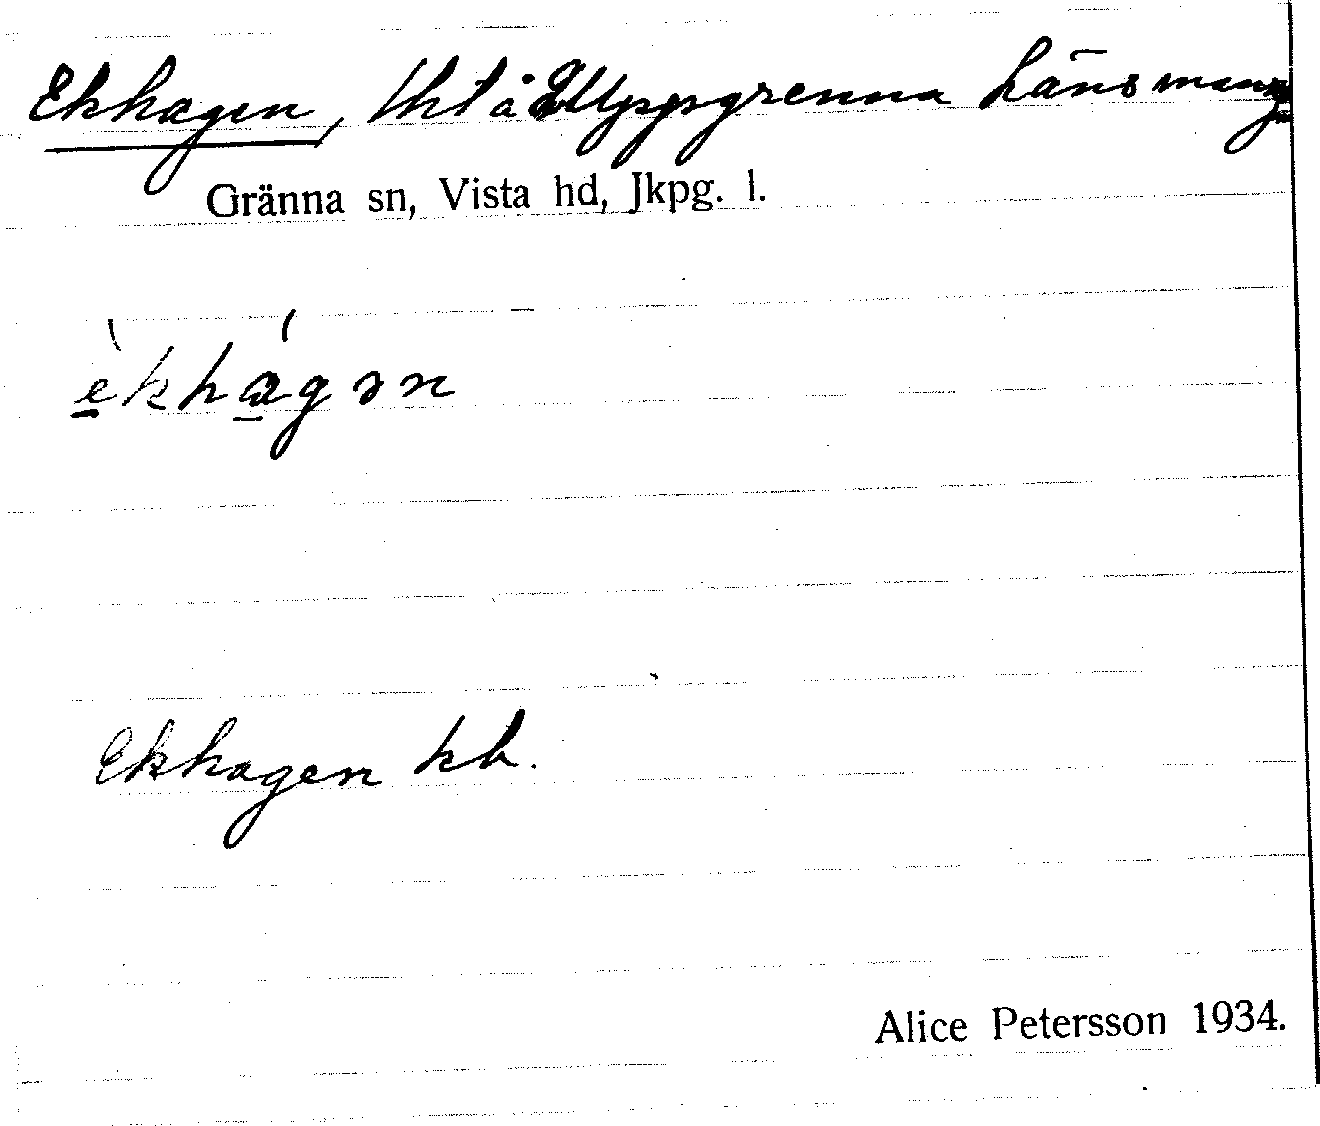 Ekhagen, tht å Uppgrenna Länsmansg
Gränna sn, Vista hd, Jkpg. l.
èkhágən
Ekhagen kb.
Alice Petersson 1934.